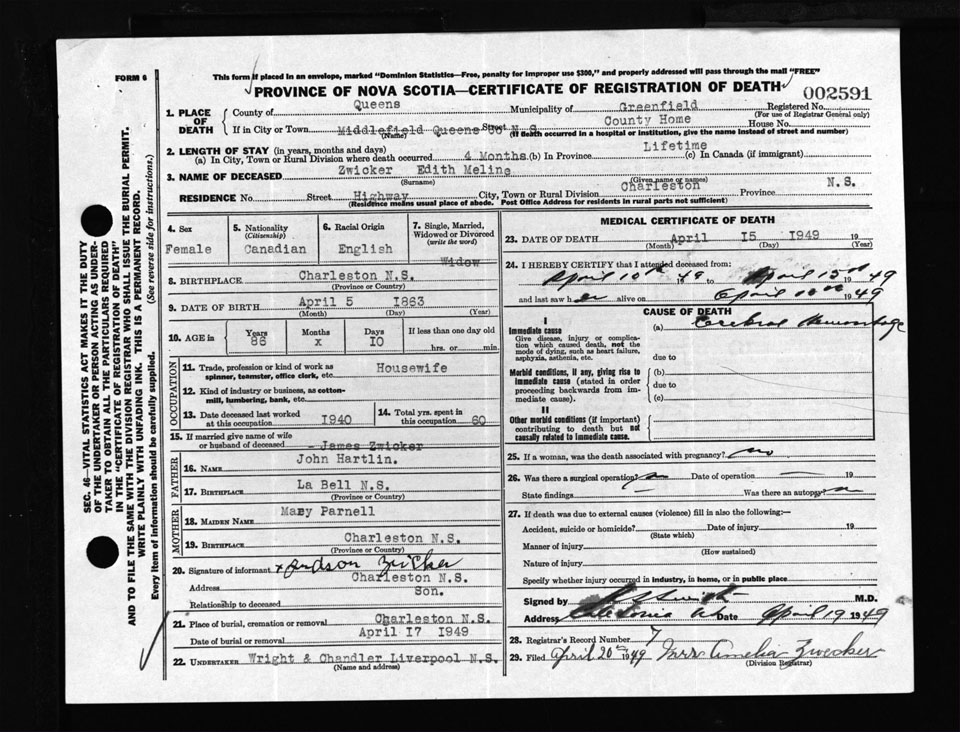 FORM 6
This form if placed in an envelope, marked "Dominion Statistics—Free, penalty for improper use $300," and properly addressed will pass through the mail "FREE"
PROVINCE OF NOVA SCOTIA—CERTIFICATE OF REGISTRATION OF DEATH
002591
1. PLACE OF DEATH
County of Queens Municipality of Greenfield Registered No.
(For use of Registrar General only)
If in City or Town Middlefield Queens Co N.S. Street County Home House No.
(Name) (If death occurred in a hospital or institution, give the name instead of street and number)
2. LENGTH OF STAY (in years, months and days)
(a) In City, Town or Rural Division where death occurred 4 Months (b) In Province Lifetime (c) In Canada (if immigrant)
3. NAME OF DECEASED Zwicker Edith Meline
(Surname) (Given name or names)
RESIDENCE No. Street Highway City, Town or Rural Division Charleston Province N.S.
(Residence means usual place of abode. Post Office Address for residents in rural parts not sufficient)
4. Sex Female
5. Nationality (Citizenship) Canadian
6. Racial Origin English
7. Single, Married, Widowed or Divorced (write the word) Widow
8. BIRTHPLACE Charleston N.S.
(Province or Country)
9. DATE OF BIRTH April 5 1863
(Month) (Day) (Year)
10. AGE in Years 86 Months x Days 10 If less than one day old hrs. or min.
OCCUPATION
11. Trade, profession or kind of work as spinner, teamster, office clerk, etc. Housewife
12. Kind of industry or business, as cotton-mill, lumbering, bank, etc.
13. Date deceased last worked at this occupation 1940
14. Total yrs. spent in this occupation 60
15. If married give name of wife or husband of deceased James Zwicker
FATHER
16. NAME John Hartlin.
17. BIRTHPLACE La Bell N.S.
(Province or Country)
MOTHER
18. MAIDEN NAME Mary Parnell
19. BIRTHPLACE Charleston N.S.
(Province or Country)
20. Signature of informant x Judson Zwicker
Address Charleston N.S.
Relationship to deceased Son.
21. Place of burial, cremation or removal Charleston N.S.
Date of burial or removal April 17 1949
22. UNDERTAKER Wright & Chandler Liverpool N.S.
(Name and address)
MEDICAL CERTIFICATE OF DEATH
23. DATE OF DEATH April 15 1949 19
(Month) (Day) (Year)
24. I HEREBY CERTIFY that I attended deceased from:
April 10th 1949 to April 15th 1949
and last saw her alive on April 1949
CAUSE OF DEATH
I
Immediate cause (a) Cerebral Hemorrhage
Give disease, injury or complication which caused death, not the mode of dying, such as heart failure, asphyxia, asthenia, etc.
due to
Morbid conditions, if any, giving rise to immediate cause (stated in order proceeding backwards from immediate cause).
(b)
due to
(c)
II
Other morbid conditions (if important) contributing to death but not causally related to immediate cause.
25. If a woman, was the death associated with pregnancy? no
26. Was there a surgical operation? no Date of operation 19
State findings Was there an autopsy? no
27. If death was due to external causes (violence) fill in also the following:—
Accident, suicide or homicide? Date of injury 19
(State which)
Manner of injury
(How sustained)
Nature of injury
Specify whether injury occurred in industry, in home, or in public place
Signed by M.D.
Address Caledonia Date April 19 1949
28. Registrar's Record Number 7
29. Filed April 20th 1949 Mrs Amelia Zwicker
(Division Registrar)
SEC. 46—VITAL STATISTICS ACT MAKES IT THE DUTY
OF THE UNDERTAKER OR PERSON ACTING AS UNDER-
TAKER TO OBTAIN ALL THE PARTICULARS REQUIRED
IN THE "CERTIFICATE OF REGISTRATION OF DEATH"
AND TO FILE THE SAME WITH THE DIVISION REGISTRAR WHO SHALL ISSUE THE BURIAL PERMIT.
WRITE PLAINLY WITH UNFADING INK. THIS IS A PERMANENT RECORD.
Every item of information should be carefully supplied. (See reverse side for instructions.)